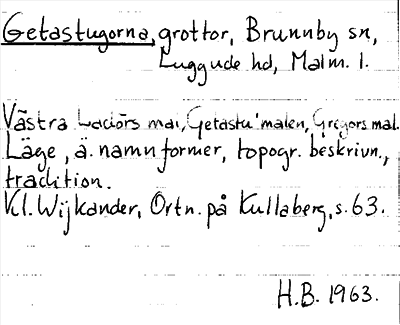 Getastugorna, grottor, Brunnby sn,
Luggude hd, Malm. l.
Västra Ladörs mal, Getastu'malen, Gregors mal.
Läge, ä. namnformer, topogr. beskrivn.,
tradition.
Kl. Wijkander, Ortn. på Kullaberg, s. 63.
H.B. 1963.